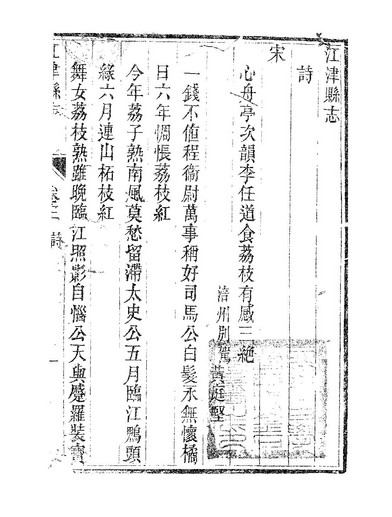 江津縣志
詩
宋
心舟亭次韻李任道食荔枝有感三絶
涪州別駕 黃庭堅
一錢不值程衛尉萬事稱好司馬公白髮永無懷橘
日六年惆悵荔枝紅
今年荔子熟南風莫愁留滯太史公五月臨江鴨頭
綠六月連山柘枝紅
舞女荔枝熟雖晚臨江照影自惱公天與蹙羅裝寶
江津縣志 卷 詩 一